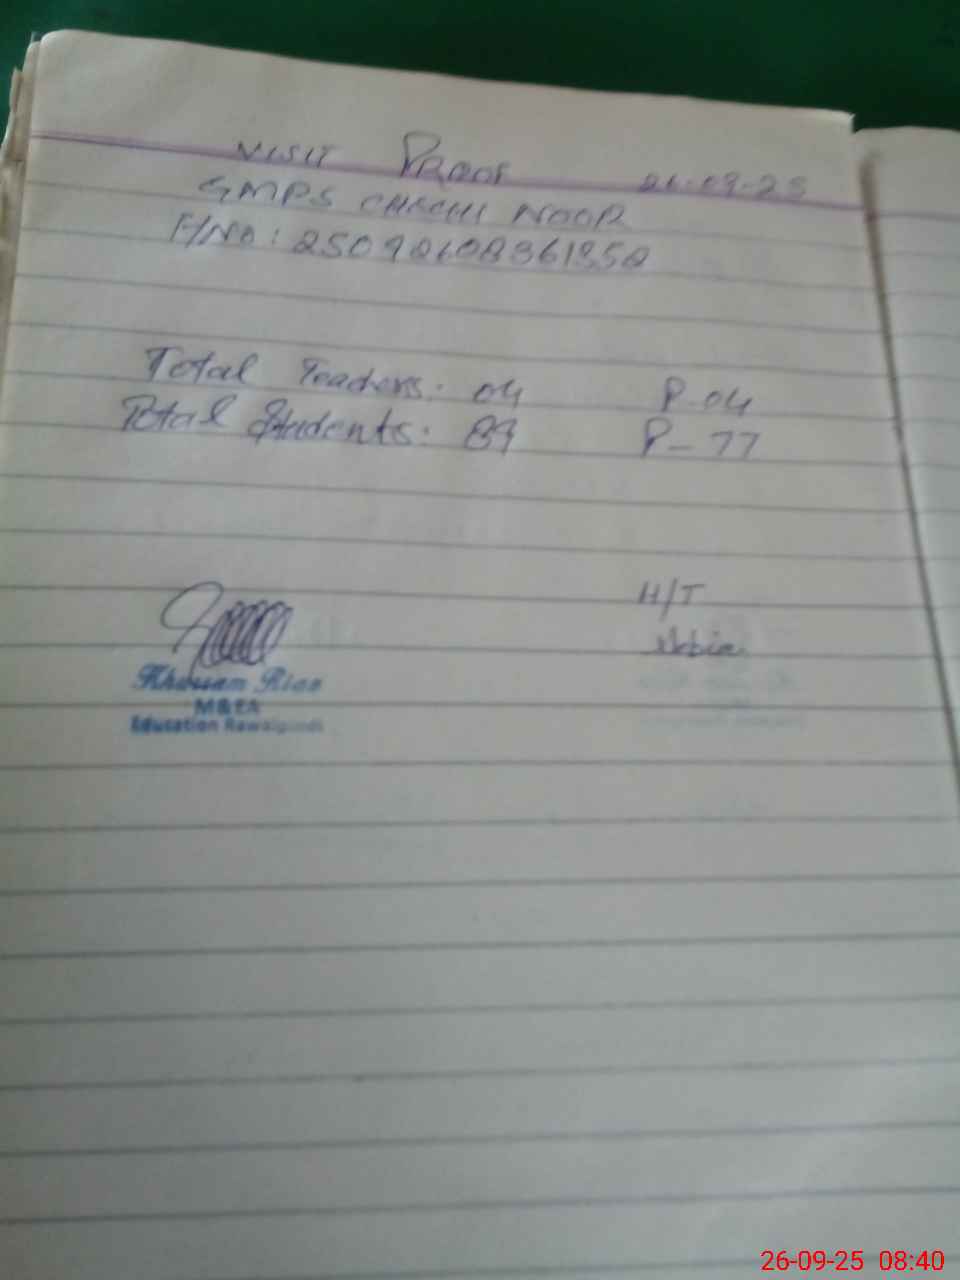 VISIT PROOF 26-09-25
GMPS CHECHI NOOR
F/NO:
Total Teachers: 04 P-04
Total Students: 89 P-77
H/T
Khurram Riaz
M&EA
Education Rawalpindi
26-09-25 08:40